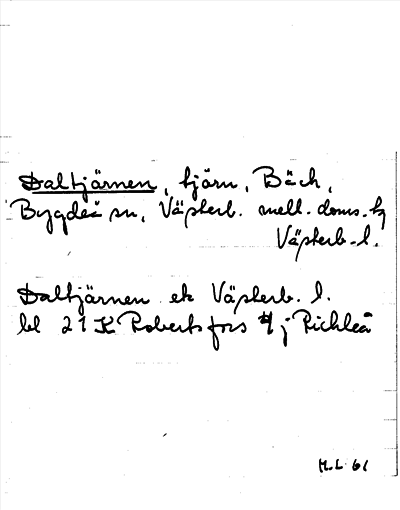 Daltjärnen, tjärn, Bäck,
Bygdeå sn, Västerb. mell. doms. hg
Västerb. l.
Daltjärnen ek Västerb. l.
bl 21 K Robertsfors j Rickleå
H.L. 61